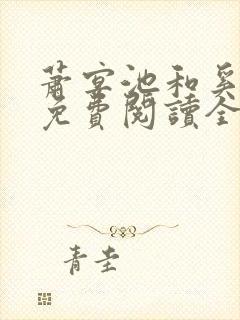 蕭宴池和奚
免費閱讀全
青圭